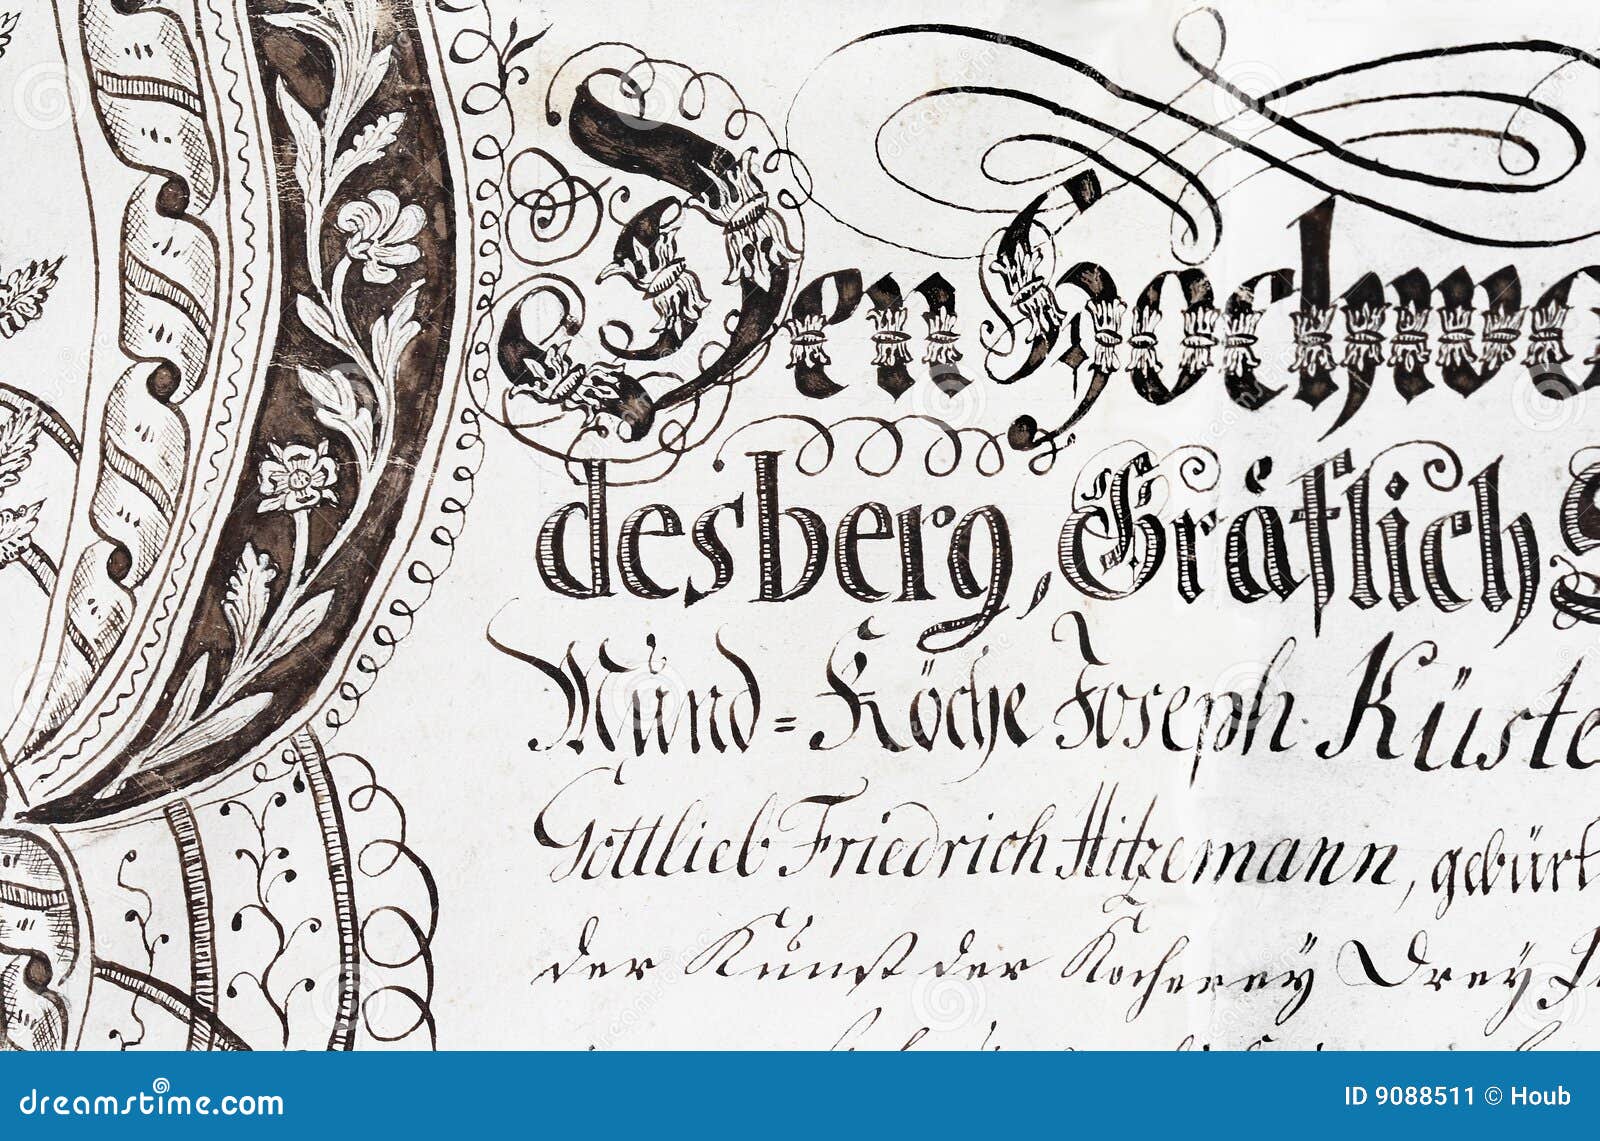 Den Hochwo
desberg, Gräflich S
Mund=Köche Joseph Küste
Gottlieb Friedrich Hitzemann, gebürt
der Kunst der Kocherey Drey
dreamstime.com
ID 9088511 © Houb